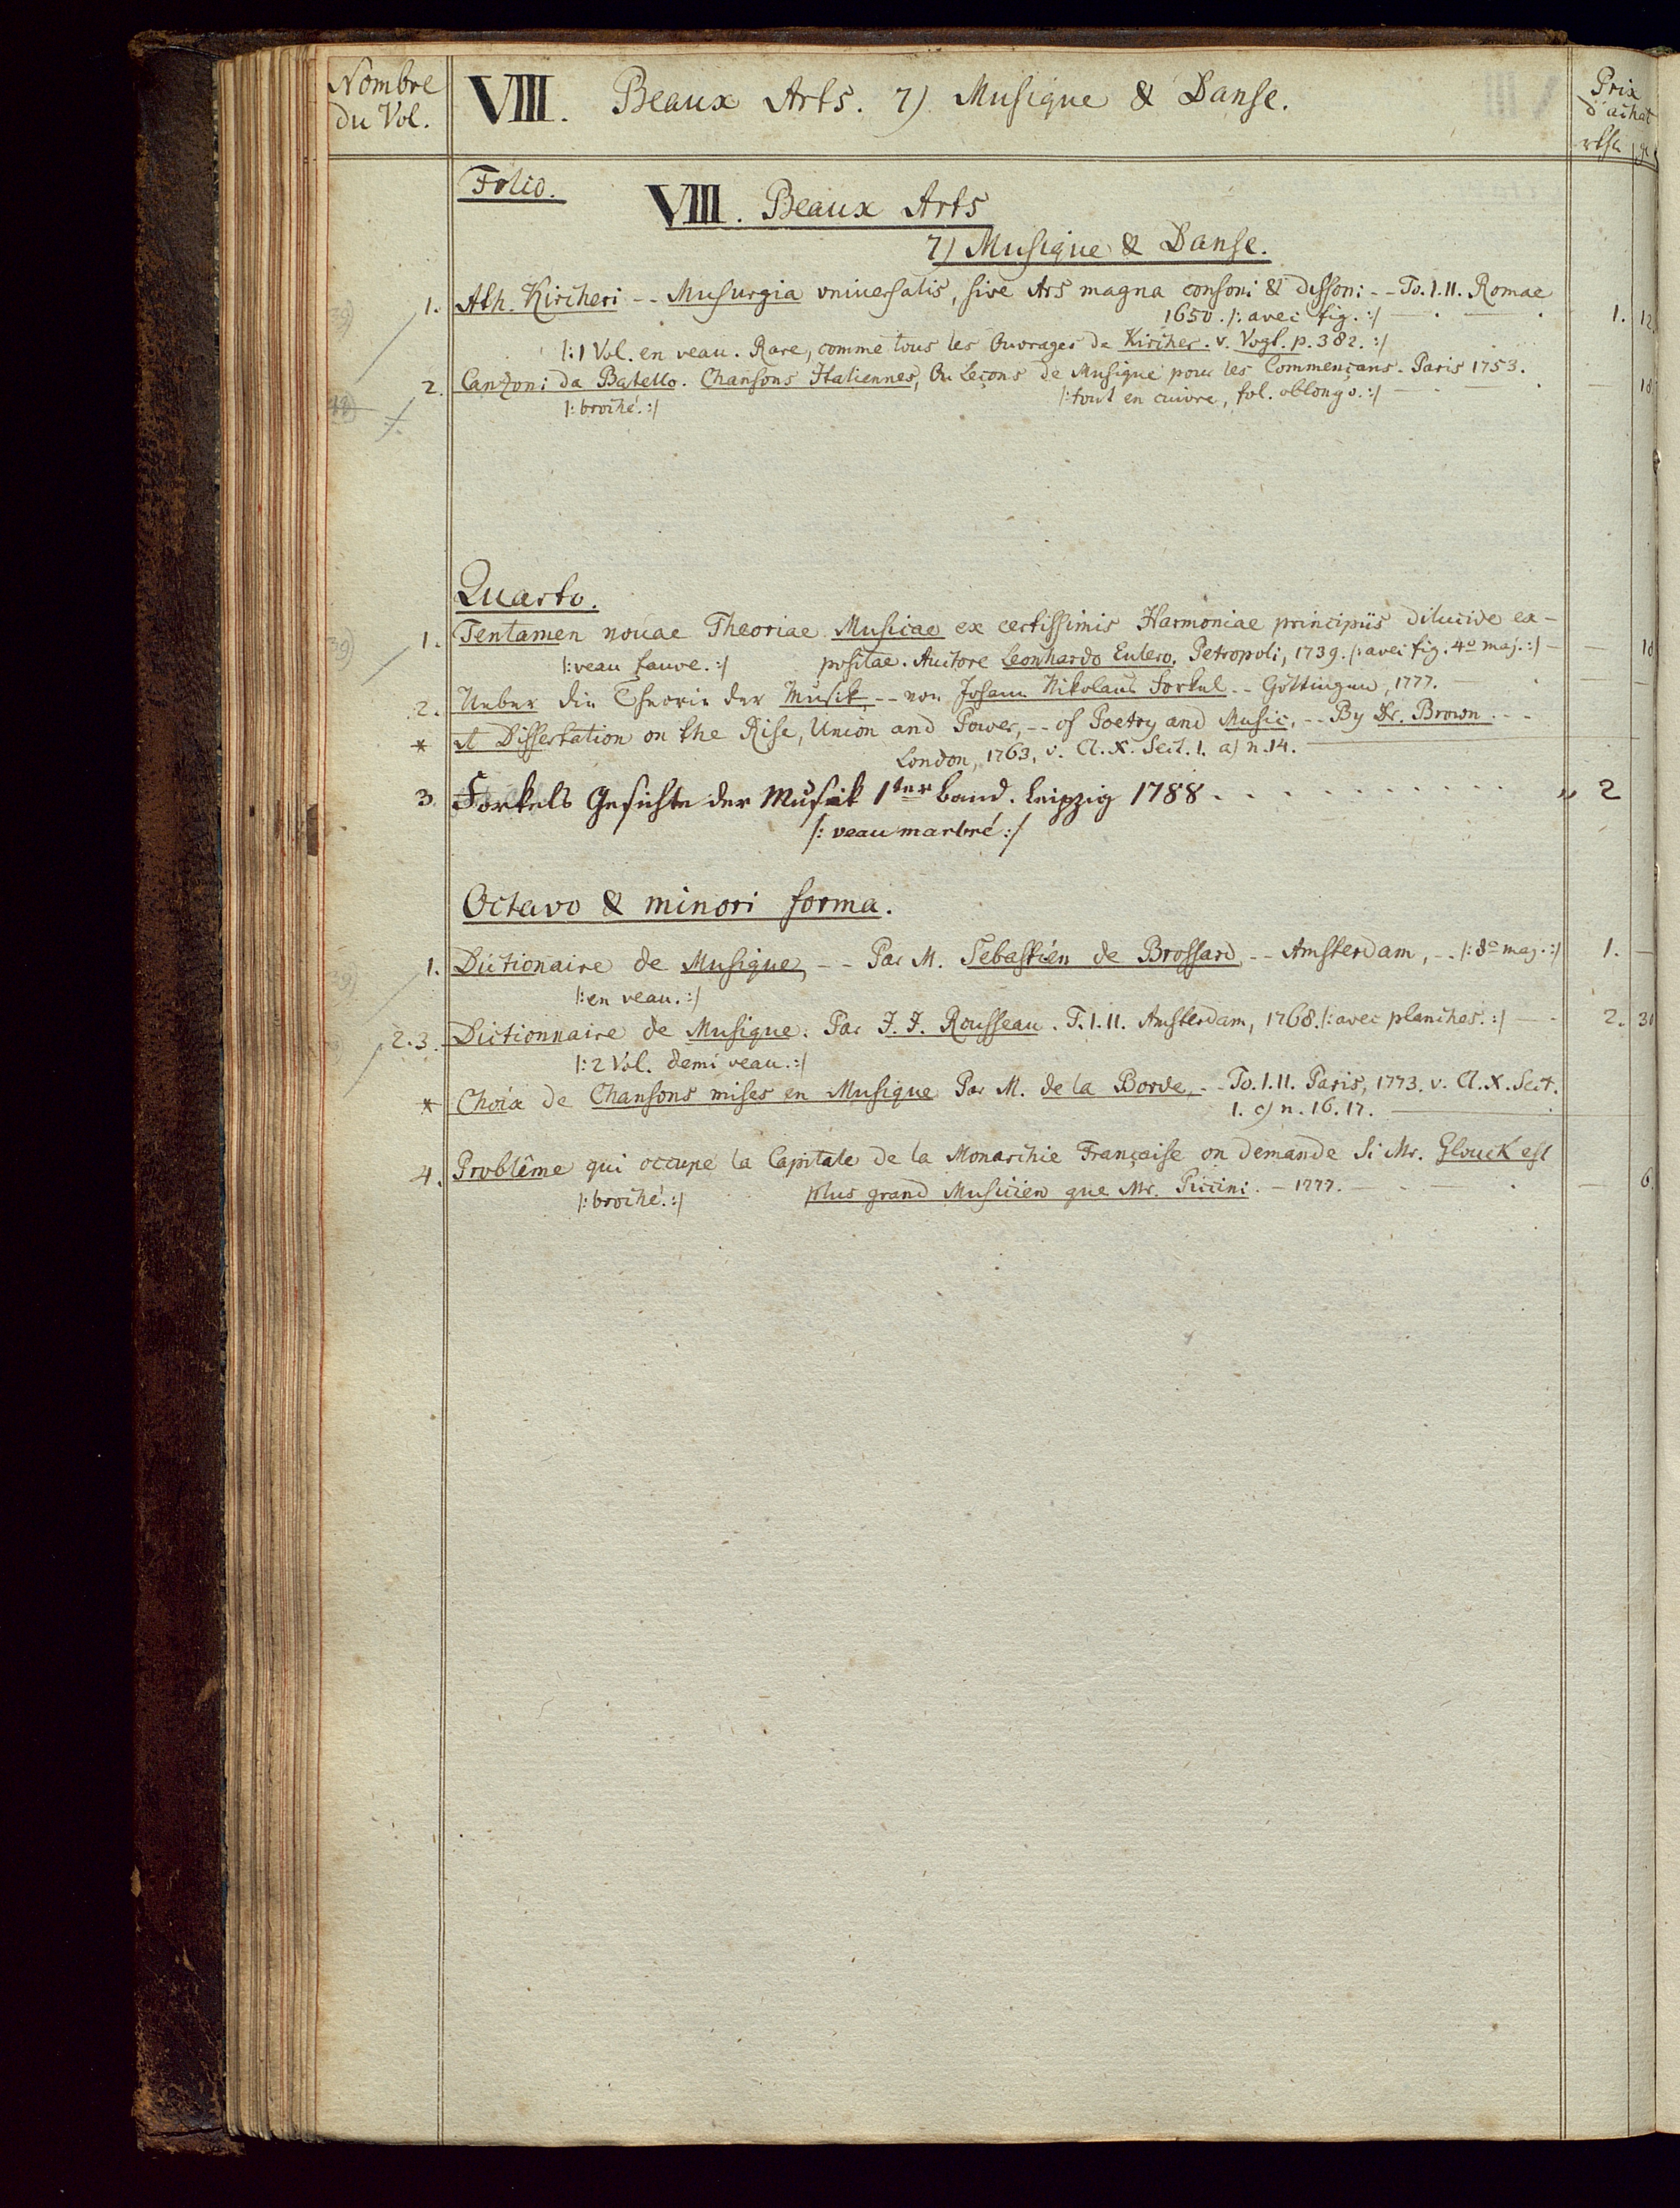 Nombre
du Vol.
VIII. Beaux Arts. 7) Musique & Danse.
Prix
d'achat
Folio.
VIII. Beaux Arts
7) Musique & Danse.
1. Ath. Kircheri -- Musurgia vniuersalis, sive Ars magna consoni & dissoni -- To. I. II. Romae
1650. /: avec fig. :/ 1. 12.
/: 1 Vol. en veau. Rare, comme tous les Ouvrages de Kircher. v. Vogt. p. 382. :/
2. Canzoni da Batello. Chansons Italiennes, Ou Leçons de Musique pour les Commençans. Paris 1753.
/: broché. :/ /: tout en cuivre, fol. oblongo. :/ — 18
Quarto.
1. Tentamen nouae Theoriae Musicae ex certissimis Harmoniae principiis dilucide ex-
/: veau fauve. :/ positae. Auctore Leonhardo Eulero. Petropoli, 1739. /: avec fig. 4o maj. :/ —
2. Ueber die Theorie der Musik, -- von Johann Nikolaus Forkel -- Göttingen, 1777. —
* A Dissertation on the Rise, Union and Power, -- of Poetry and Music, -- By Dr. Brown. --
London, 1763, v. Cl. X. Sect. 1. a) n. 14.
3. Forkels Geschichte der Musik 1ter Band. Leipzig 1788 . . . . . . . . . . . . „ 2
/: veau marbré :/
Octavo & minori forma.
1. Dictionaire de Musique, -- Par M. Sebastién de Brossard, -- Amsterdam, -- /: 8o maj. :/ 1. —
/: en veau. :/
2. 3. Dictionnaire de Musique. Par J. J. Rousseau. T. I. II. Amsterdam, 1768. /: avec planches. :/ — 2.
/: 2 Vol. demi veau. :/
* Choix de Chansons mises en Musique Par M. de la Borde, -- To. I. II. Paris, 1773. v. Cl. X. Sect.
1. c) n. 16. 17.
4. Problême qui occupe la Capitale de la Monarchie Française on demande Si Mr. Glouck est
/: broché. :/ plus grand Musicien que Mr. Piccini. — 1777. — 6.